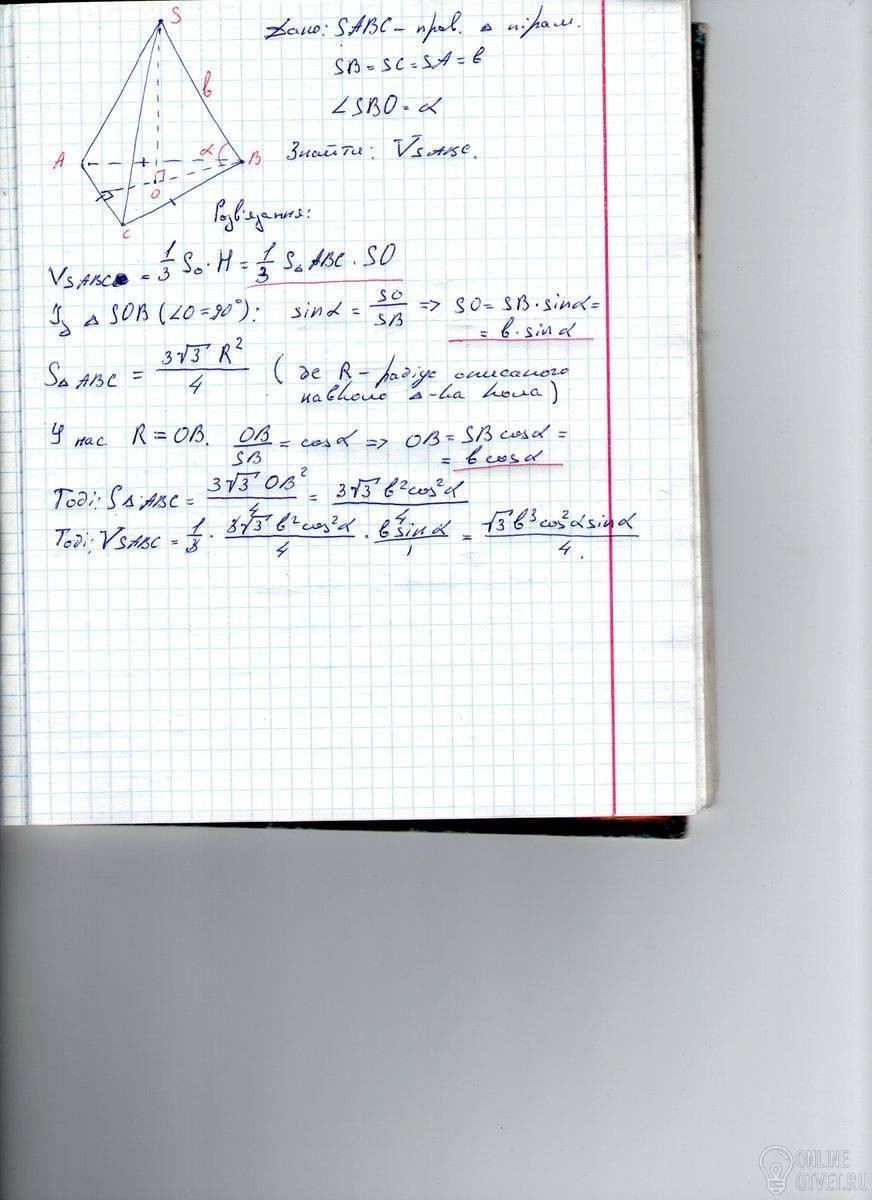 S
Дано: SABC – прав. △ пірам.
SB = SC = SA = в
в
∠SBO = α
A
α
B
Знайти: V SABC.
O
C
Розв'язання:
V SABC = 1/3 Sо · H = 1/3 S△ABC · SO
Із △ SOB (∠O = 90°): sinα = SO/SB => SO = SB · sinα =
= в · sinα
S△ABC = 3√3 R²/4 ( де R – радіус описаного
навколо △-ка кола)
У нас R = OB. OB/SB = cosα => OB = SB cosα =
= в cosα
Тоді: S△ABC = 3√3 OB²/4 = 3√3 в² cos²α/4
Тоді: V SABC = 1/3 · 3√3 в² cos²α/4 · в sinα/1 = √3 в³ cos²α sinα/4.
ONLINE
OTVET.RU